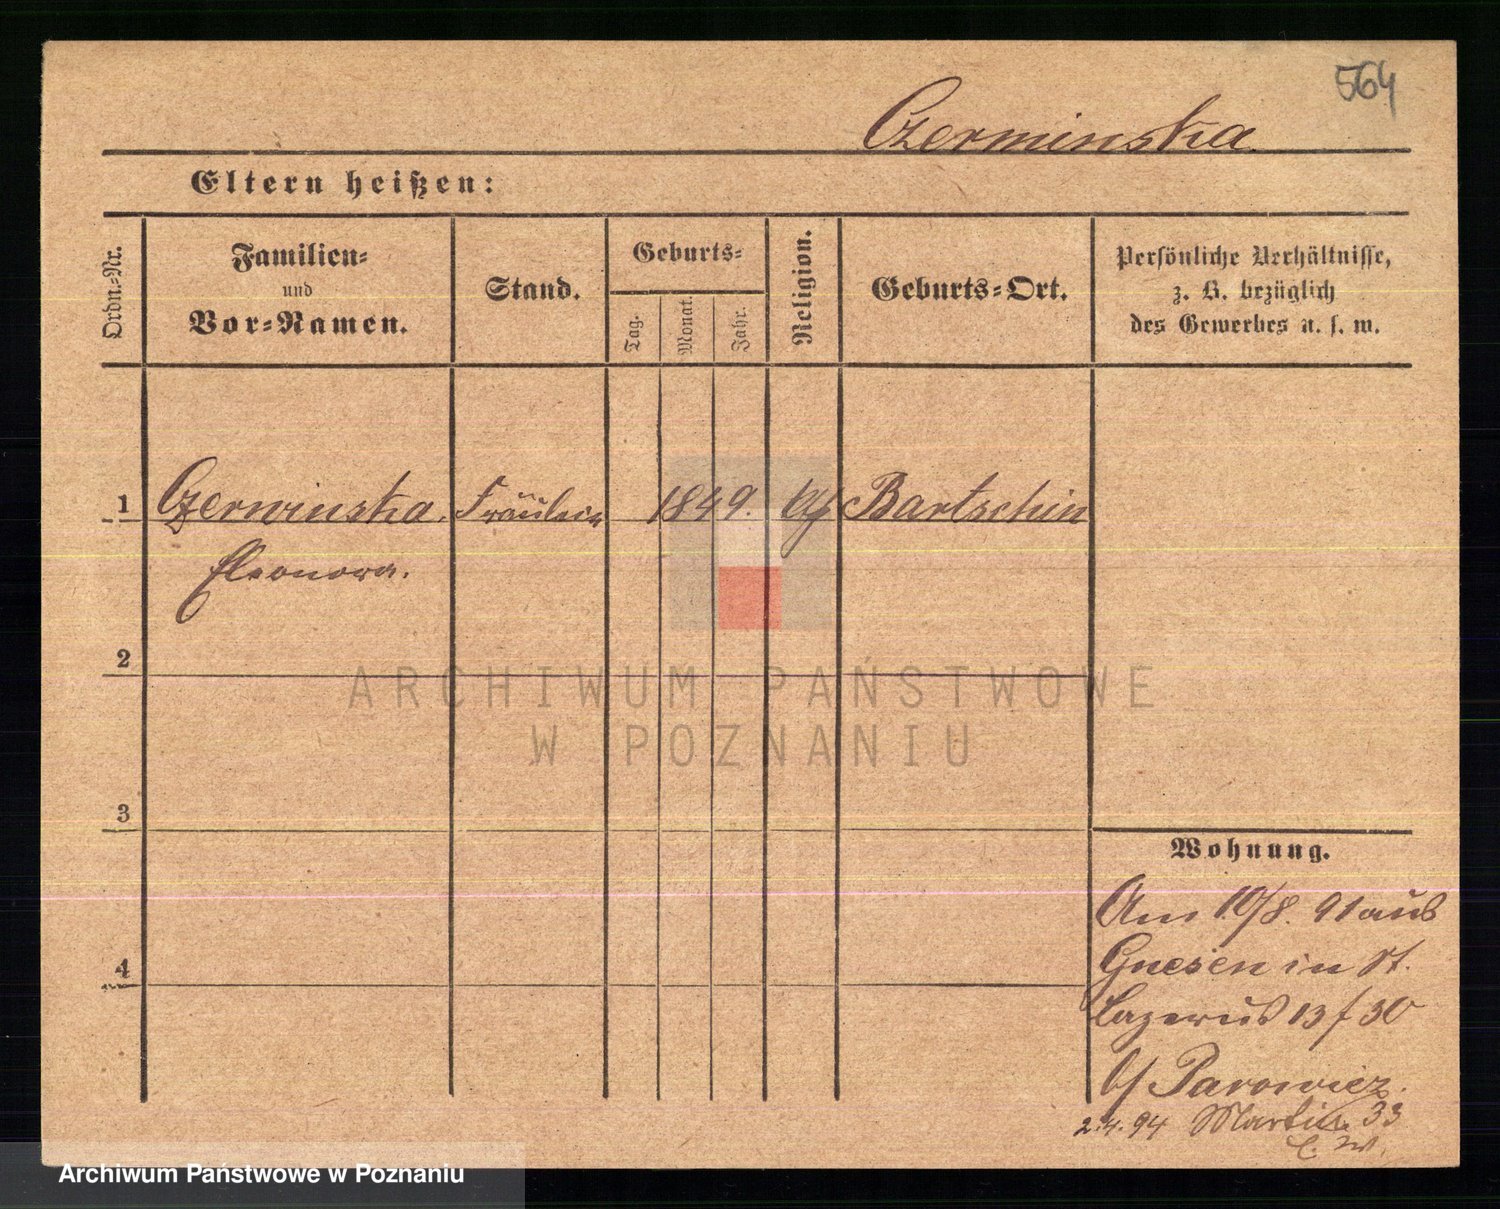 564
Czerminska
Eltern heißen:
Ordn.-Nr.
Familien-
und
Vor-Namen.
Stand.
Geburts-
Tag.
Monat.
Jahr.
Religion.
Geburts-Ort.
Persönliche Verhältnisse,
z. B. bezüglich
des Gewerbes u. s. w.
1 Czerwinska, Fräulein 1849. Bartschin
Eleonora.
2
ARCHIWUM PAŃSTWOWE
W POZNANIU
3
Wohnung.
Am 10/8. 91 aus
4
Gnesen in St.
Lazarus 13 f 30
b/ Parowicz.
2.4.94 Martin 33
Archiwum Państwowe w Poznaniu